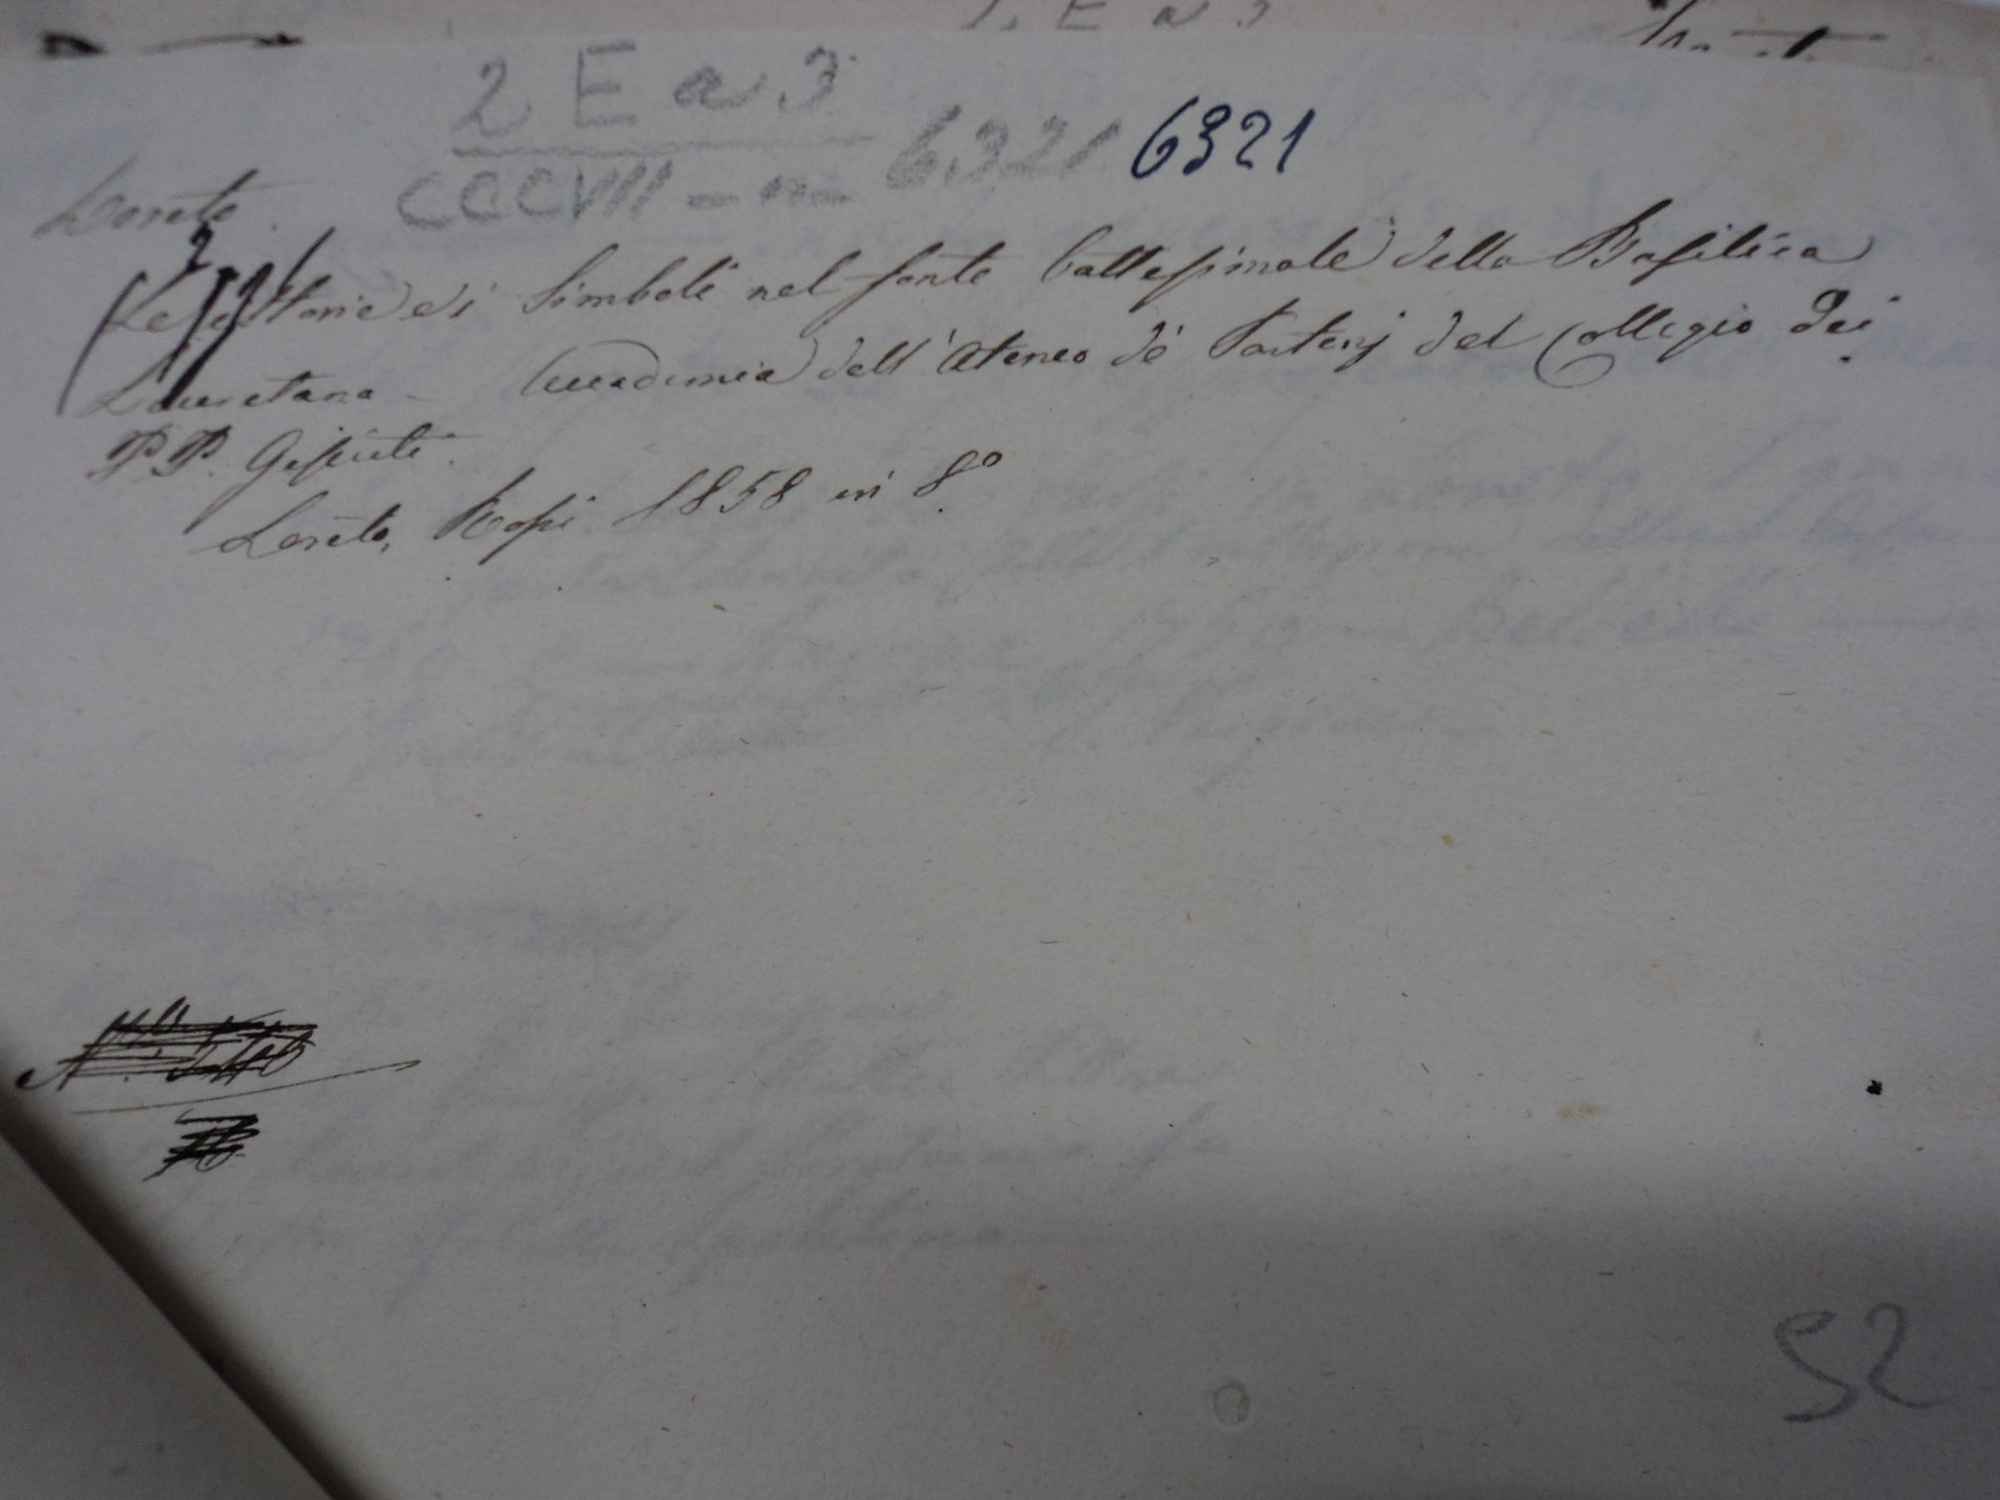 2 E a 3
CCCVIII - n- 6321 6321
Loreto
Le Storie e i Simboli nel fonte battesimale della Basilica
Lauretana - Accademia dell'Ateneo de' Partenj del Collegio dei
PP. Gesuiti.
Loreto, Rossi 1858 in 8º
52